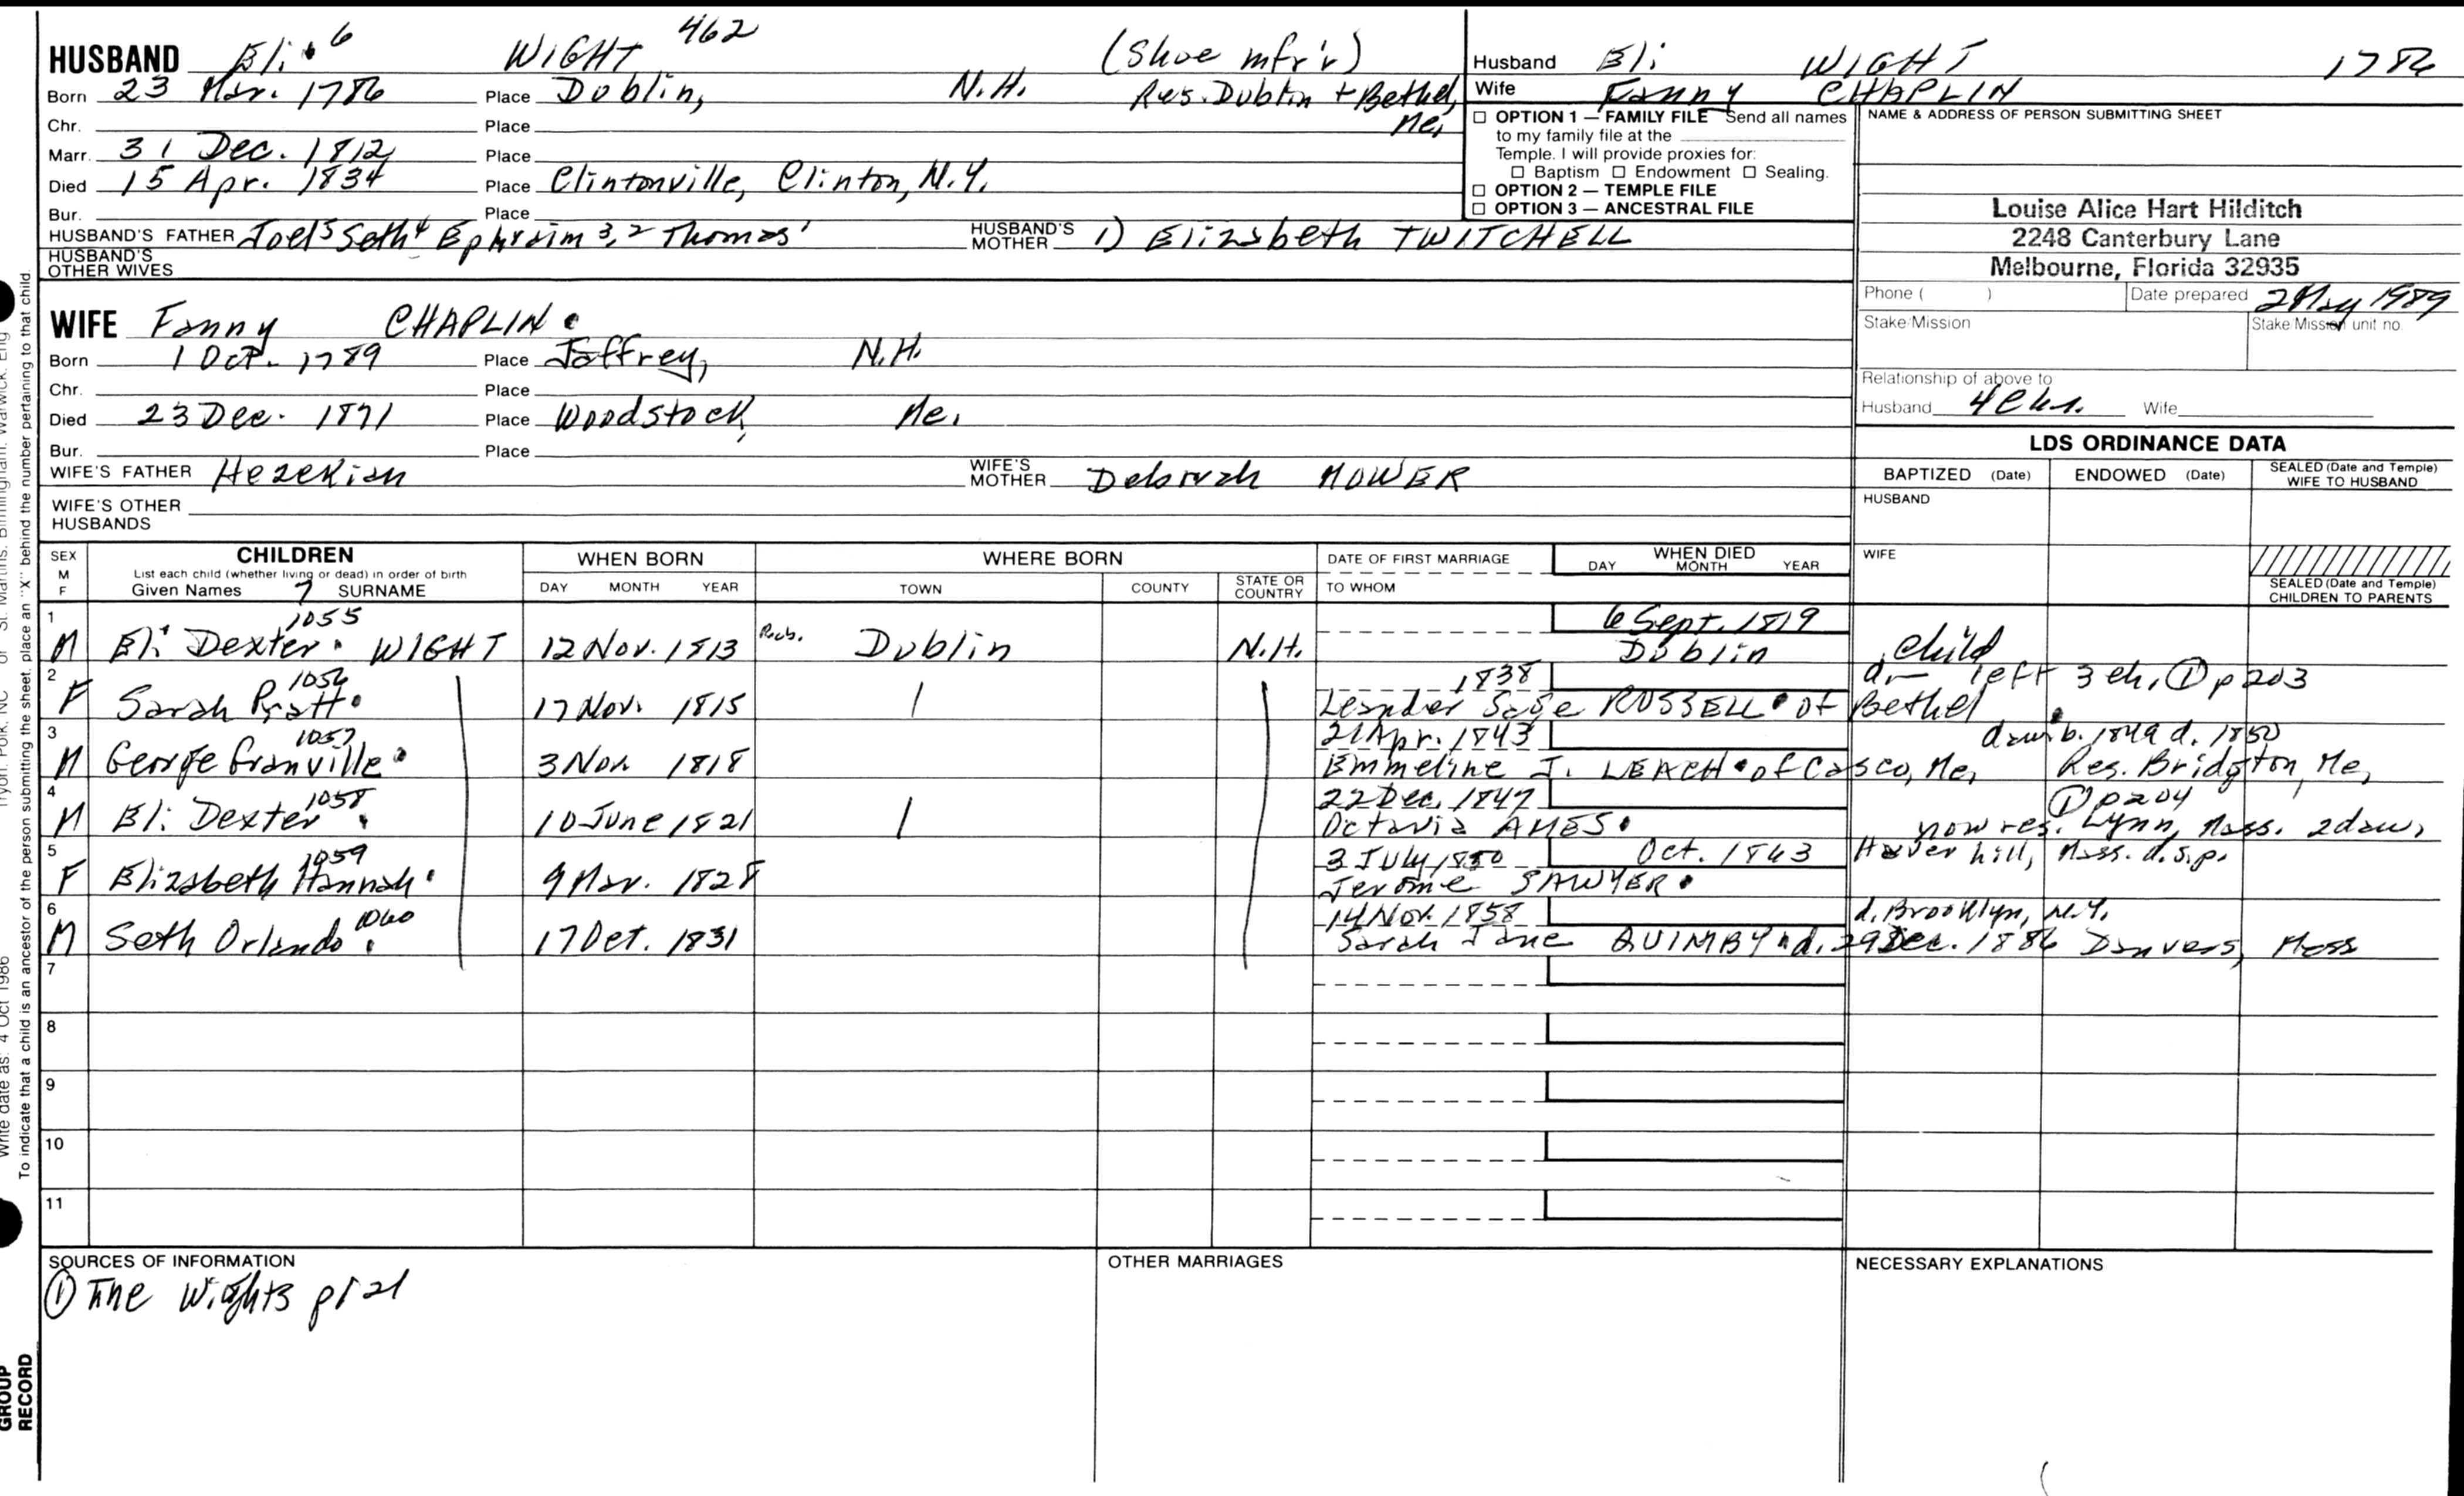 HUSBAND Eli 6 WIGHT 462 (Shoe mfr'r)
Born 23 Mar. 1786 Place Dublin, N.H. Res. Dublin + Bethel,
Me.
Chr. Place
Marr. 31 Dec. 1812 Place
Died 15 Apr. 1834 Place Clintonville, Clinton, N.Y.
Bur. Place
HUSBAND'S FATHER Joel5 Seth4 Ephraim 3,2 Thomas1 HUSBAND'S MOTHER 1) Elizabeth TWITCHELL
HUSBAND'S OTHER WIVES
Husband Eli WIGHT 1786
Wife Fanny CHAPLIN
☐ OPTION 1 — FAMILY FILE Send all names
to my family file at the
Temple. I will provide proxies for:
☐ Baptism ☐ Endowment ☐ Sealing.
☐ OPTION 2 — TEMPLE FILE
☐ OPTION 3 — ANCESTRAL FILE
NAME & ADDRESS OF PERSON SUBMITTING SHEET
Louise Alice Hart Hilditch
2248 Canterbury Lane
Melbourne, Florida 32935
Phone ( ) Date prepared 2 May 1989
Stake/Mission Stake/Mission unit no.
Relationship of above to
Husband Wife
WIFE Fanny CHAPLIN
Born 1 Oct. 1789 Place Jaffrey, N.H.
Chr. Place
Died 23 Dec. 1871 Place Woodstock, Me.
Bur. Place
WIFE'S FATHER Hezekiah WIFE'S MOTHER Deborah MOWER
WIFE'S OTHER HUSBANDS
LDS ORDINANCE DATA
BAPTIZED (Date) ENDOWED (Date) SEALED (Date and Temple) WIFE TO HUSBAND
HUSBAND
WIFE
SEALED (Date and Temple) CHILDREN TO PARENTS
SEX M F CHILDREN WHEN BORN WHERE BORN DATE OF FIRST MARRIAGE WHEN DIED
List each child (whether living or dead) in order of birth
Given Names 7 SURNAME DAY MONTH YEAR TOWN COUNTY STATE OR COUNTRY TO WHOM DAY MONTH YEAR
1 1055 6 Sept. 1819
M Eli Dexter WIGHT 12 Nov. 1813 Prob. Dublin N.H. Dublin child
2 1056 1838 d. — left 3 ch, ① p203
F Sarah Pratt 17 Nov. 1815 Leander Sage RUSSELL of Bethel
3 1057 21 Apr. 1843 dau. b. 1849 d. 1850
M George Granville 3 Nov. 1818 Emmeline J. LEACH of Casco, Me, Res. Bridgton, Me,
4 1058 22 Dec. 1847 ① p204
M Eli Dexter 10 June 1821 Octavia AMES now res. Lynn, Mass. 2 dau,
5 1059 3 July 1850 Oct. 1863 Haverhill, Mass. d.s.p.
F Elizabeth Hannah 9 Mar. 1828 Jerome SAWYER
6 1060 14 Nov. 1858 d. Brooklyn, N.Y.
M Seth Orlando 17 Oct. 1831 Sarah Jane QUIMBY d. 29 Dec. 1886 Danvers, Mass
7
8
9
10
11
SOURCES OF INFORMATION OTHER MARRIAGES NECESSARY EXPLANATIONS
① The Wights p121
To indicate that a child is an ancestor of the person submitting the sheet, place an "X" behind the number pertaining to that child
Write date as: 4 Oct 1986
GROUP
RECORD